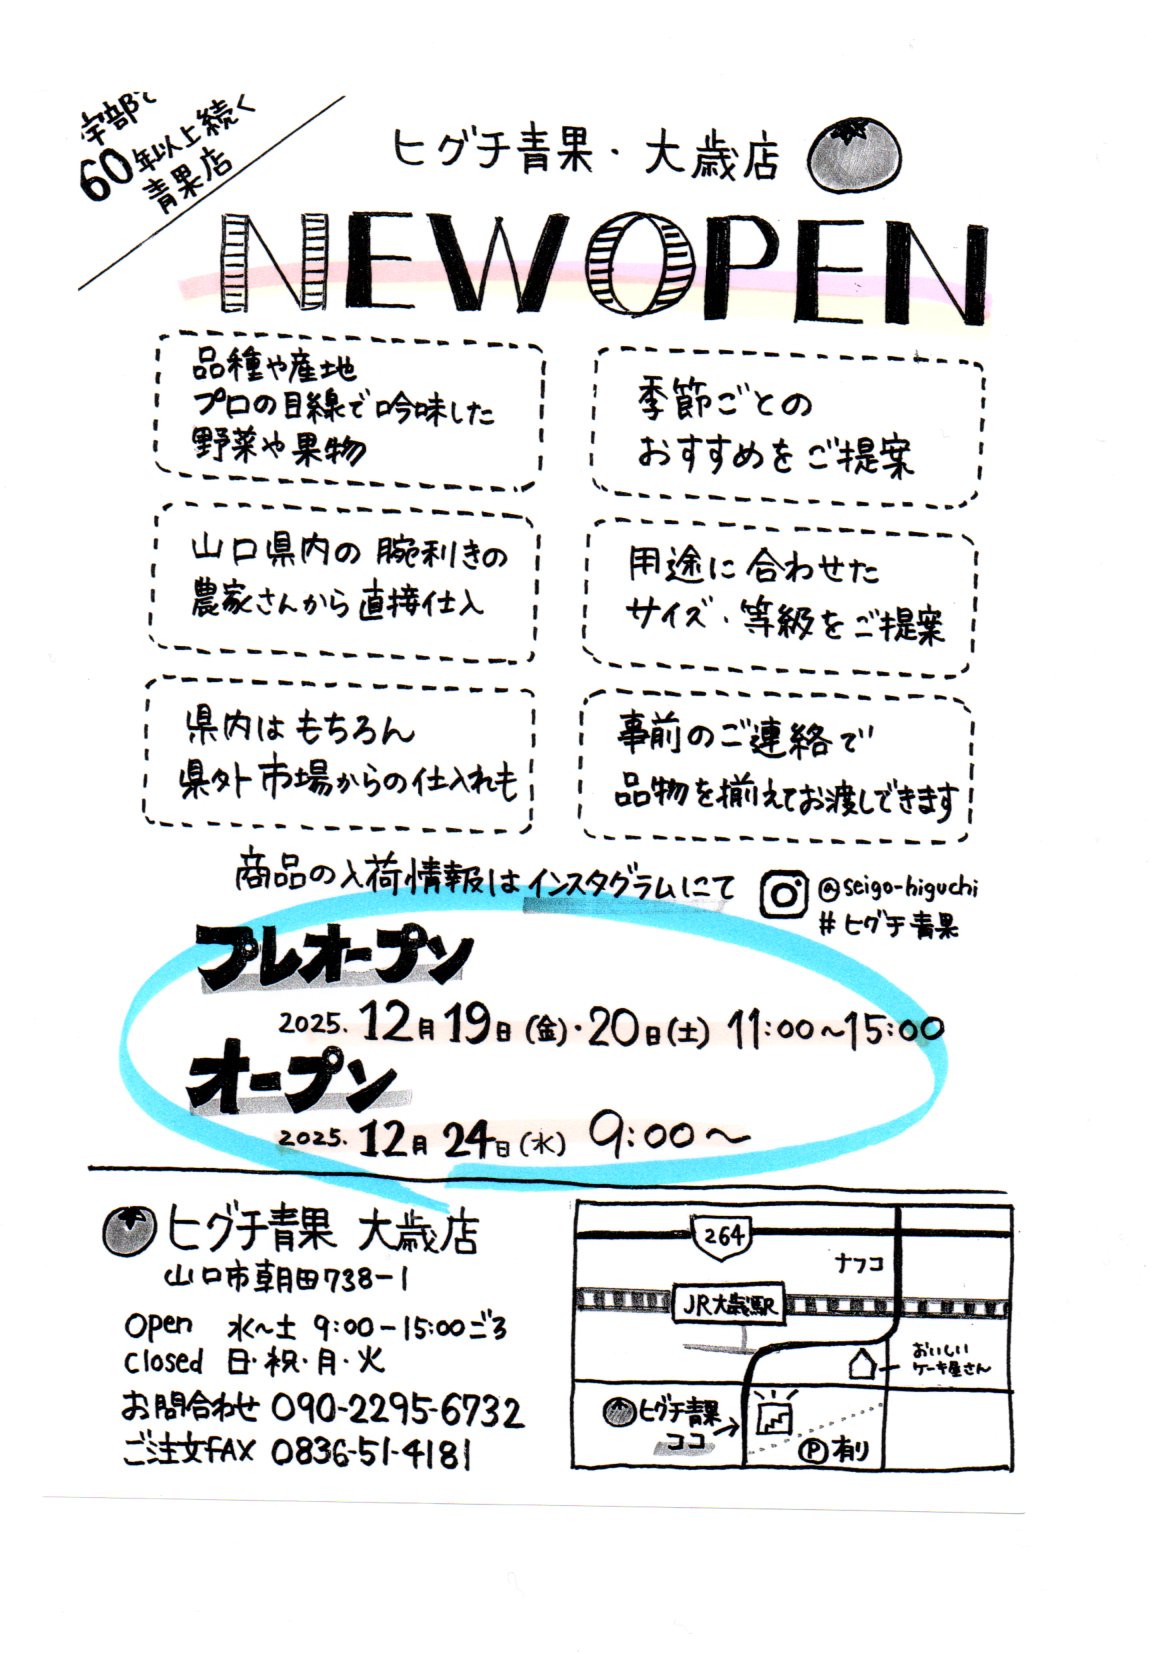 宇部で
60年以上続く
青果店
ヒグチ青果・大歳店
NEW OPEN
品種や産地
プロの目線で吟味した
野菜や果物
季節ごとの
おすすめをご提案
山口県内の腕利きの
農家さんから直接仕入
用途に合わせた
サイズ・等級をご提案
県内はもちろん
県外市場からの仕入れも
事前のご連絡で
品物を揃えてお渡しできます
商品の入荷情報はインスタグラムにて
@seigo-higuchi
#ヒグチ青果
プレオープン
2025. 12月19日(金)・20日(土) 11:00~15:00
オープン
2025. 12月24日(水) 9:00~
ヒグチ青果 大歳店
山口市朝田738-1
Open 水~土 9:00-15:00ごろ
Closed 日・祝・月・火
お問合わせ 090-2295-6732
ご注文FAX 0836-51-4181
264
ナフコ
JR大歳駅
おいしい
ケーキ屋さん
ヒグチ青果
ココ
P有り